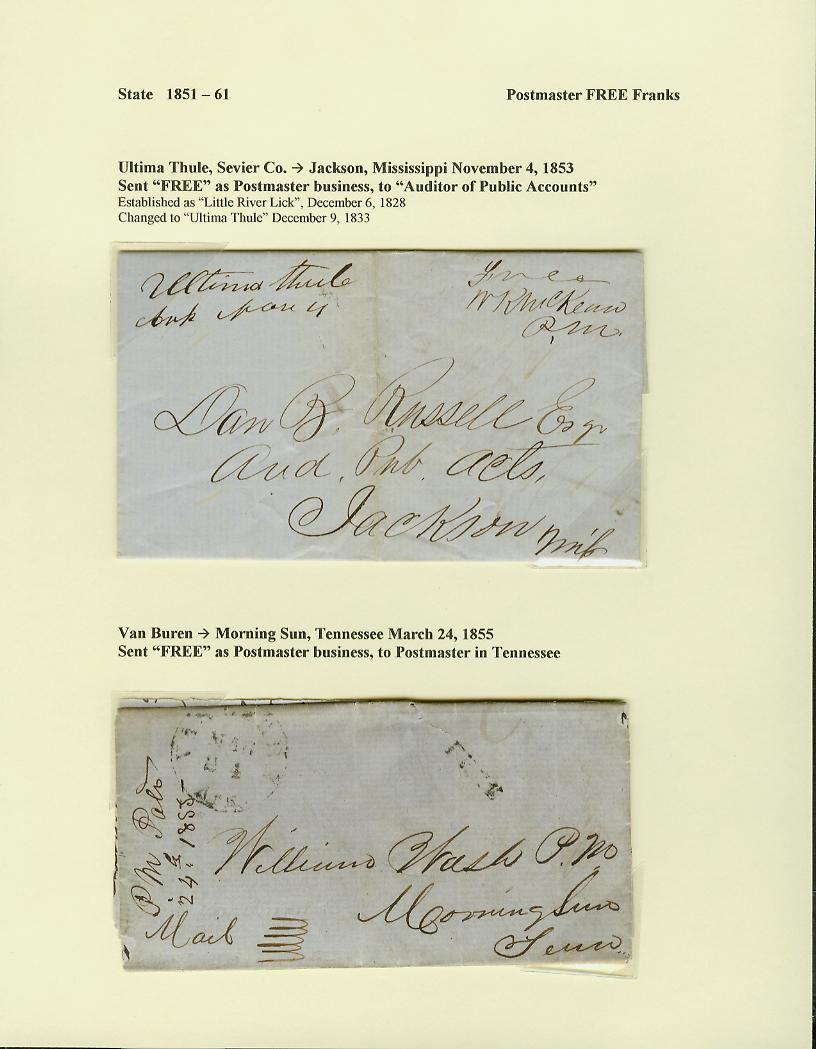 State 1851 – 61
Postmaster FREE Franks
Ultima Thule, Sevier Co. → Jackson, Mississippi November 4, 1853
Sent “FREE” as Postmaster business, to “Auditor of Public Accounts”
Established as “Little River Lick”, December 6, 1828
Changed to “Ultima Thule” December 9, 1833
Ultima Thule
Ark Nov 4
Free
W K McKean
P.M.
Dan B. Russell Esqr
Aud. Pub. Acts,
Jackson Miss
Van Buren → Morning Sun, Tennessee March 24, 1855
Sent “FREE” as Postmaster business, to Postmaster in Tennessee
MAR
24
FREE
P M
24th 1855
Mail
William Wash P.M
Morning Sun
Tenn